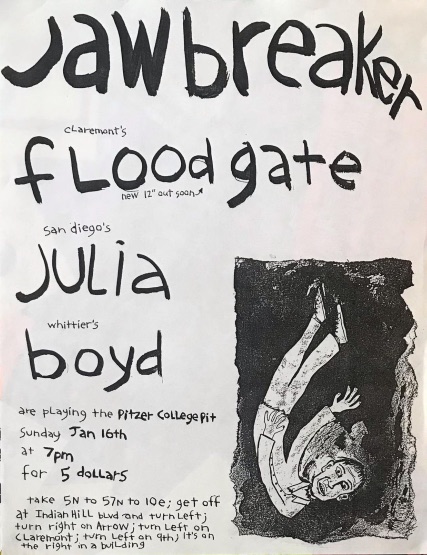 Jawbreaker
claremont's
fLoodgate
new 12" out soon
san diego's
JULia
whittier's
boyd
are playing the Pitzer College Pit
Sunday Jan 16th
at 7pm
for 5 dollars
take 5N to 57N to 10e; get off
at Indian Hill blvd and turn Left;
turn right on Arrow; turn Left on
CLaremont; turn Left on 9th; it's on
the right in a building